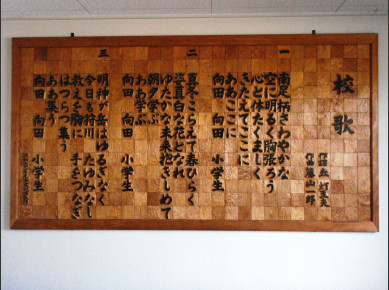 校歌
作曲 藤山一郎
一
南足柄さわやかな
空に明るく胸張ろう
心と体たくましく
きたえてここに
ああここに
向田 向田 小学生
二
夏冬こらえて春ひらく
真白な花となれ
ゆたかな未来抱きしめて
朝夕学ぶ
ああ学ぶ
向田 向田 小学生
三
明神が岳はゆるぎなく
今日も狩川 たゆみなし
教えを胸に 手をつなぎ
はつらつ集う
ああ集う
向田 向田 小学生